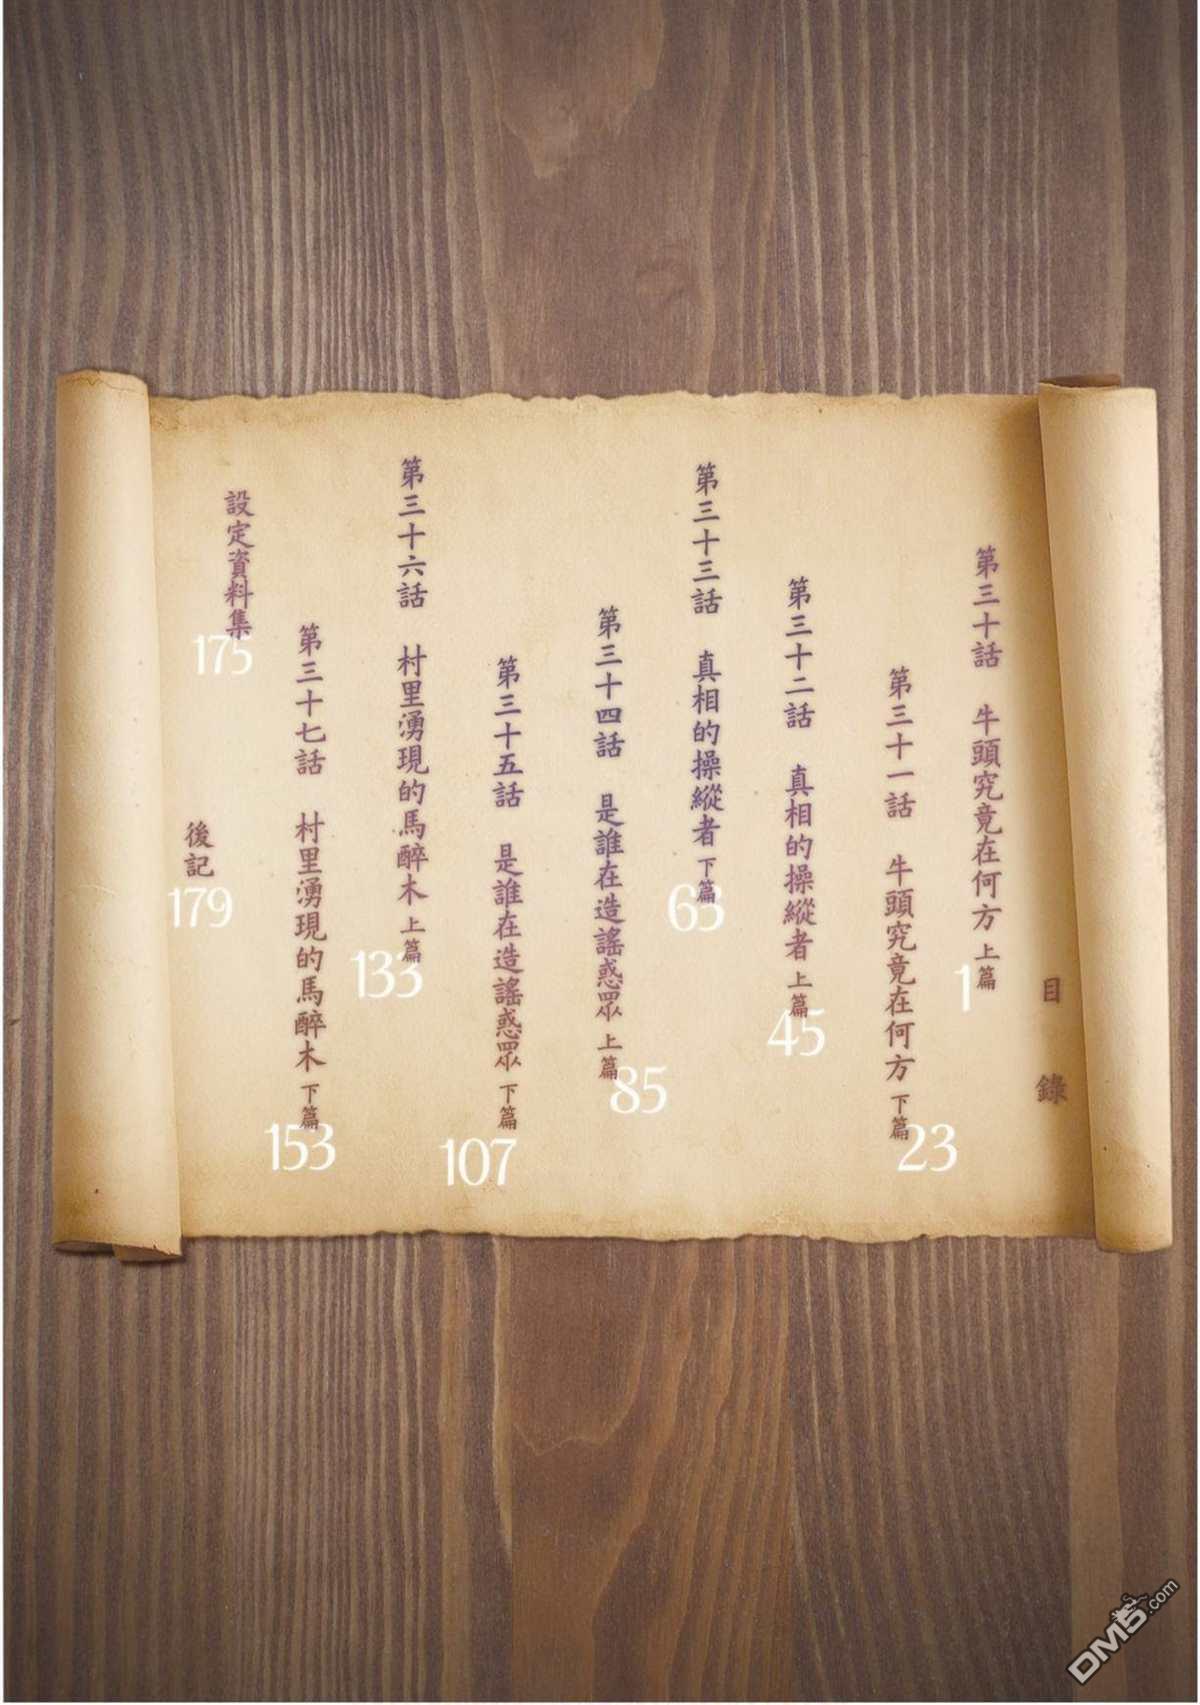 目錄
第三十話 牛頭究竟在何方 上篇
1
第三十一話 牛頭究竟在何方 下篇
23
第三十二話 真相的操縱者 上篇
45
第三十三話 真相的操縱者 下篇
63
第三十四話 是誰在造謠惑眾 上篇
85
第三十五話 是誰在造謠惑眾 下篇
107
第三十六話 村里湧現的馬醉木 上篇
133
第三十七話 村里湧現的馬醉木 下篇
153
設定資料集
175
後記
179
DM5.com